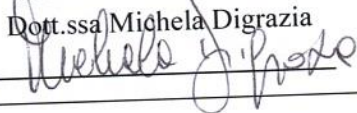 Dott.ssa Michela Digrazia
Michela Digrazia